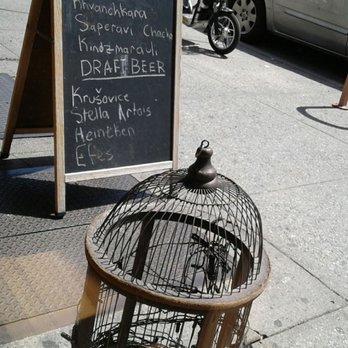 Khvanchkara
Saperavi Chacha
Kindzmarauli
DRAFT BEER
Krušovice
Stella Artois
Heineken
Efes